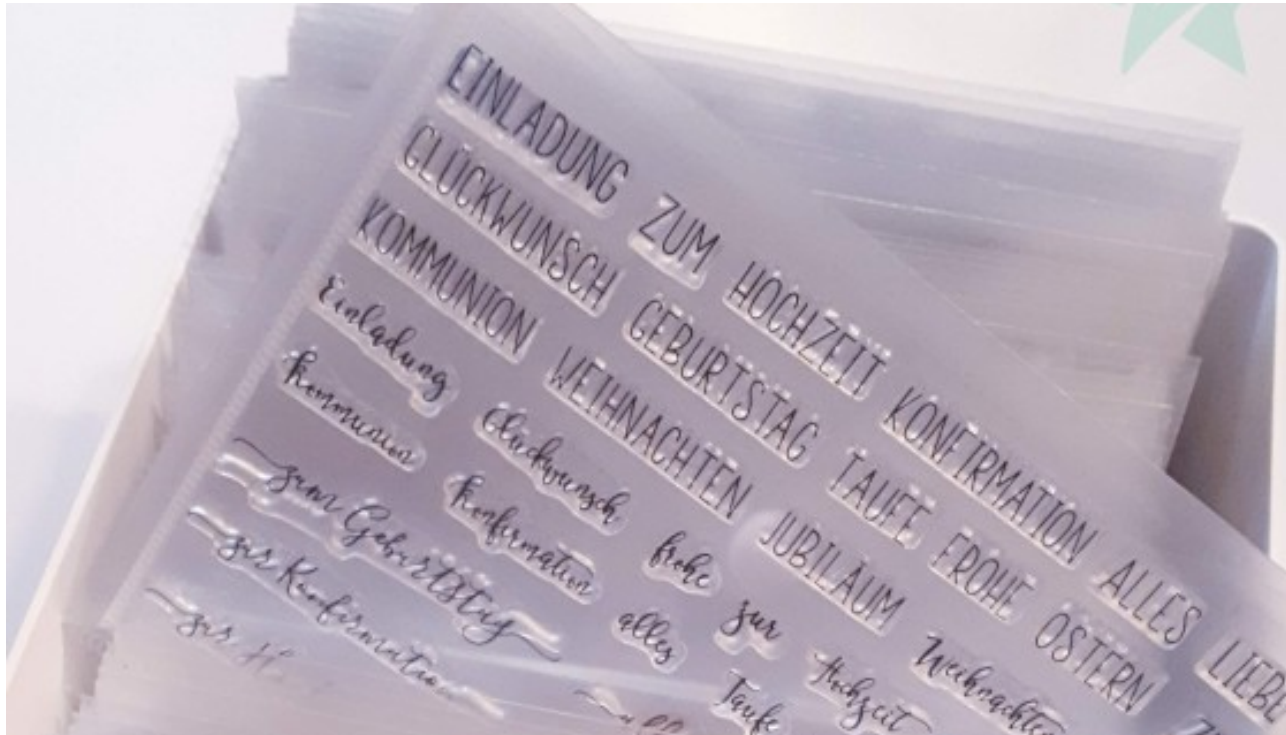 EINLADUNG ZUM HOCHZEIT KONFIRMATION ALLES LIEBE
GLÜCKWUNSCH GEBURTSTAG TAUFE FROHE OSTERN
KOMMUNION WEIHNACHTEN JUBILÄUM Weihnachten
Einladung Glückwunsch frohe zur Hochzeit
Kommunion Konfirmation alles Taufe
zum Geburtstag
zur Konfirmation
zur